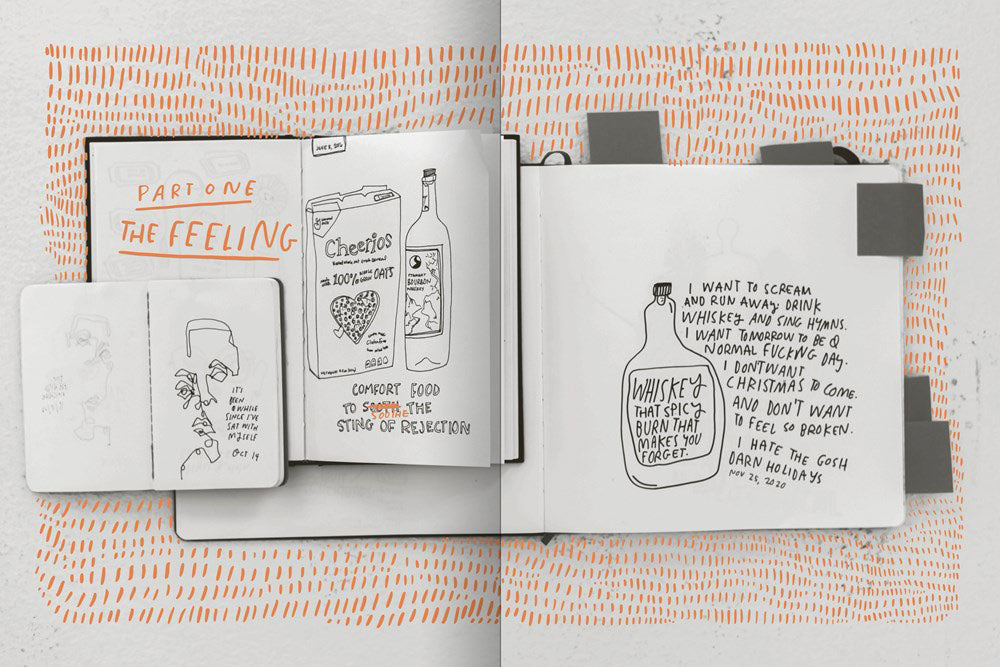 PART ONE
THE FEELING
IT'S
BEEN
A WHILE
SINCE I'VE
SAT WITH
MYSELF
OCT 19
JUNE 8, 2016
Cheerios
100% WHOLE GRAIN OATS
Gluten Free
STRAIGHT
BOURBON
WHISKEY
COMFORT FOOD
TO SOOTH SOOTHE THE
STING OF REJECTION
WHISKEY
THAT SPICY
BURN THAT
MAKES YOU
FORGET.
I WANT TO SCREAM
AND RUN AWAY. DRINK
WHISKEY AND SING HYMNS.
I WANT TOMORROW TO BE A
NORMAL FUCKING DAY.
I DON'T WANT
CHRISTMAS TO COME.
AND DON'T WANT
TO FEEL SO BROKEN.
I HATE THE GOSH
DARN HOLIDAYS
NOV 25, 2020